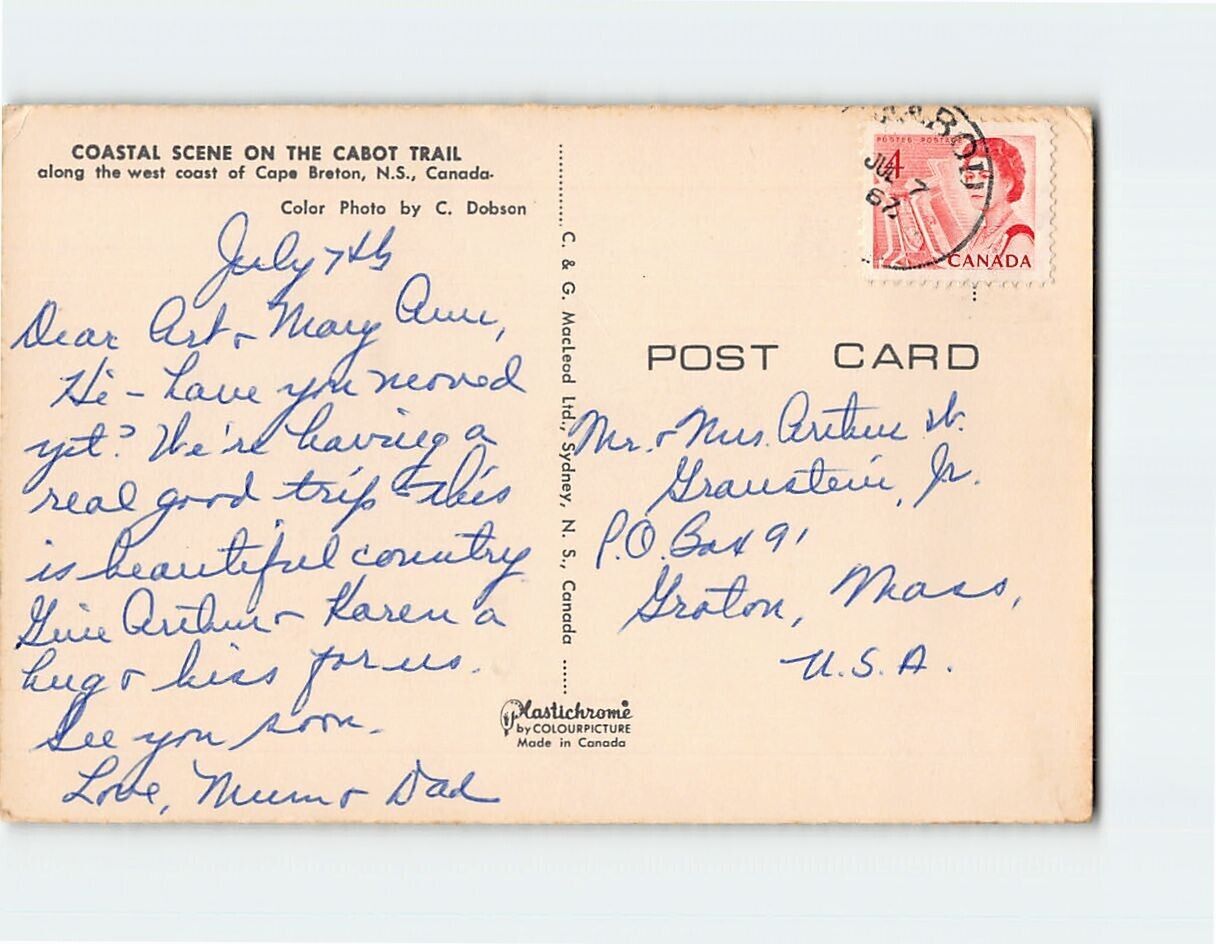 COASTAL SCENE ON THE CABOT TRAIL
along the west coast of Cape Breton, N.S., Canada-
Color Photo by C. Dobson
July 7th
Dear Art & Mary Ann,
Hi - have you moved
yet? We're having a
real good trip - this
is beautiful country
Give Arthur & Karen a
hug & kiss for us.
See you soon.
Love, Mum & Dad
C. & G. MacLeod Ltd., Sydney, N. S., Canada
Plastichrome
by COLOURPICTURE
Made in Canada
POSTES POSTAGE
4
CANADA
JUL 7
67
POST CARD
Mr. & Mrs. Arthur W.
Graustein, Jr.
P.O. Box 91
Groton, Mass,
U.S.A.